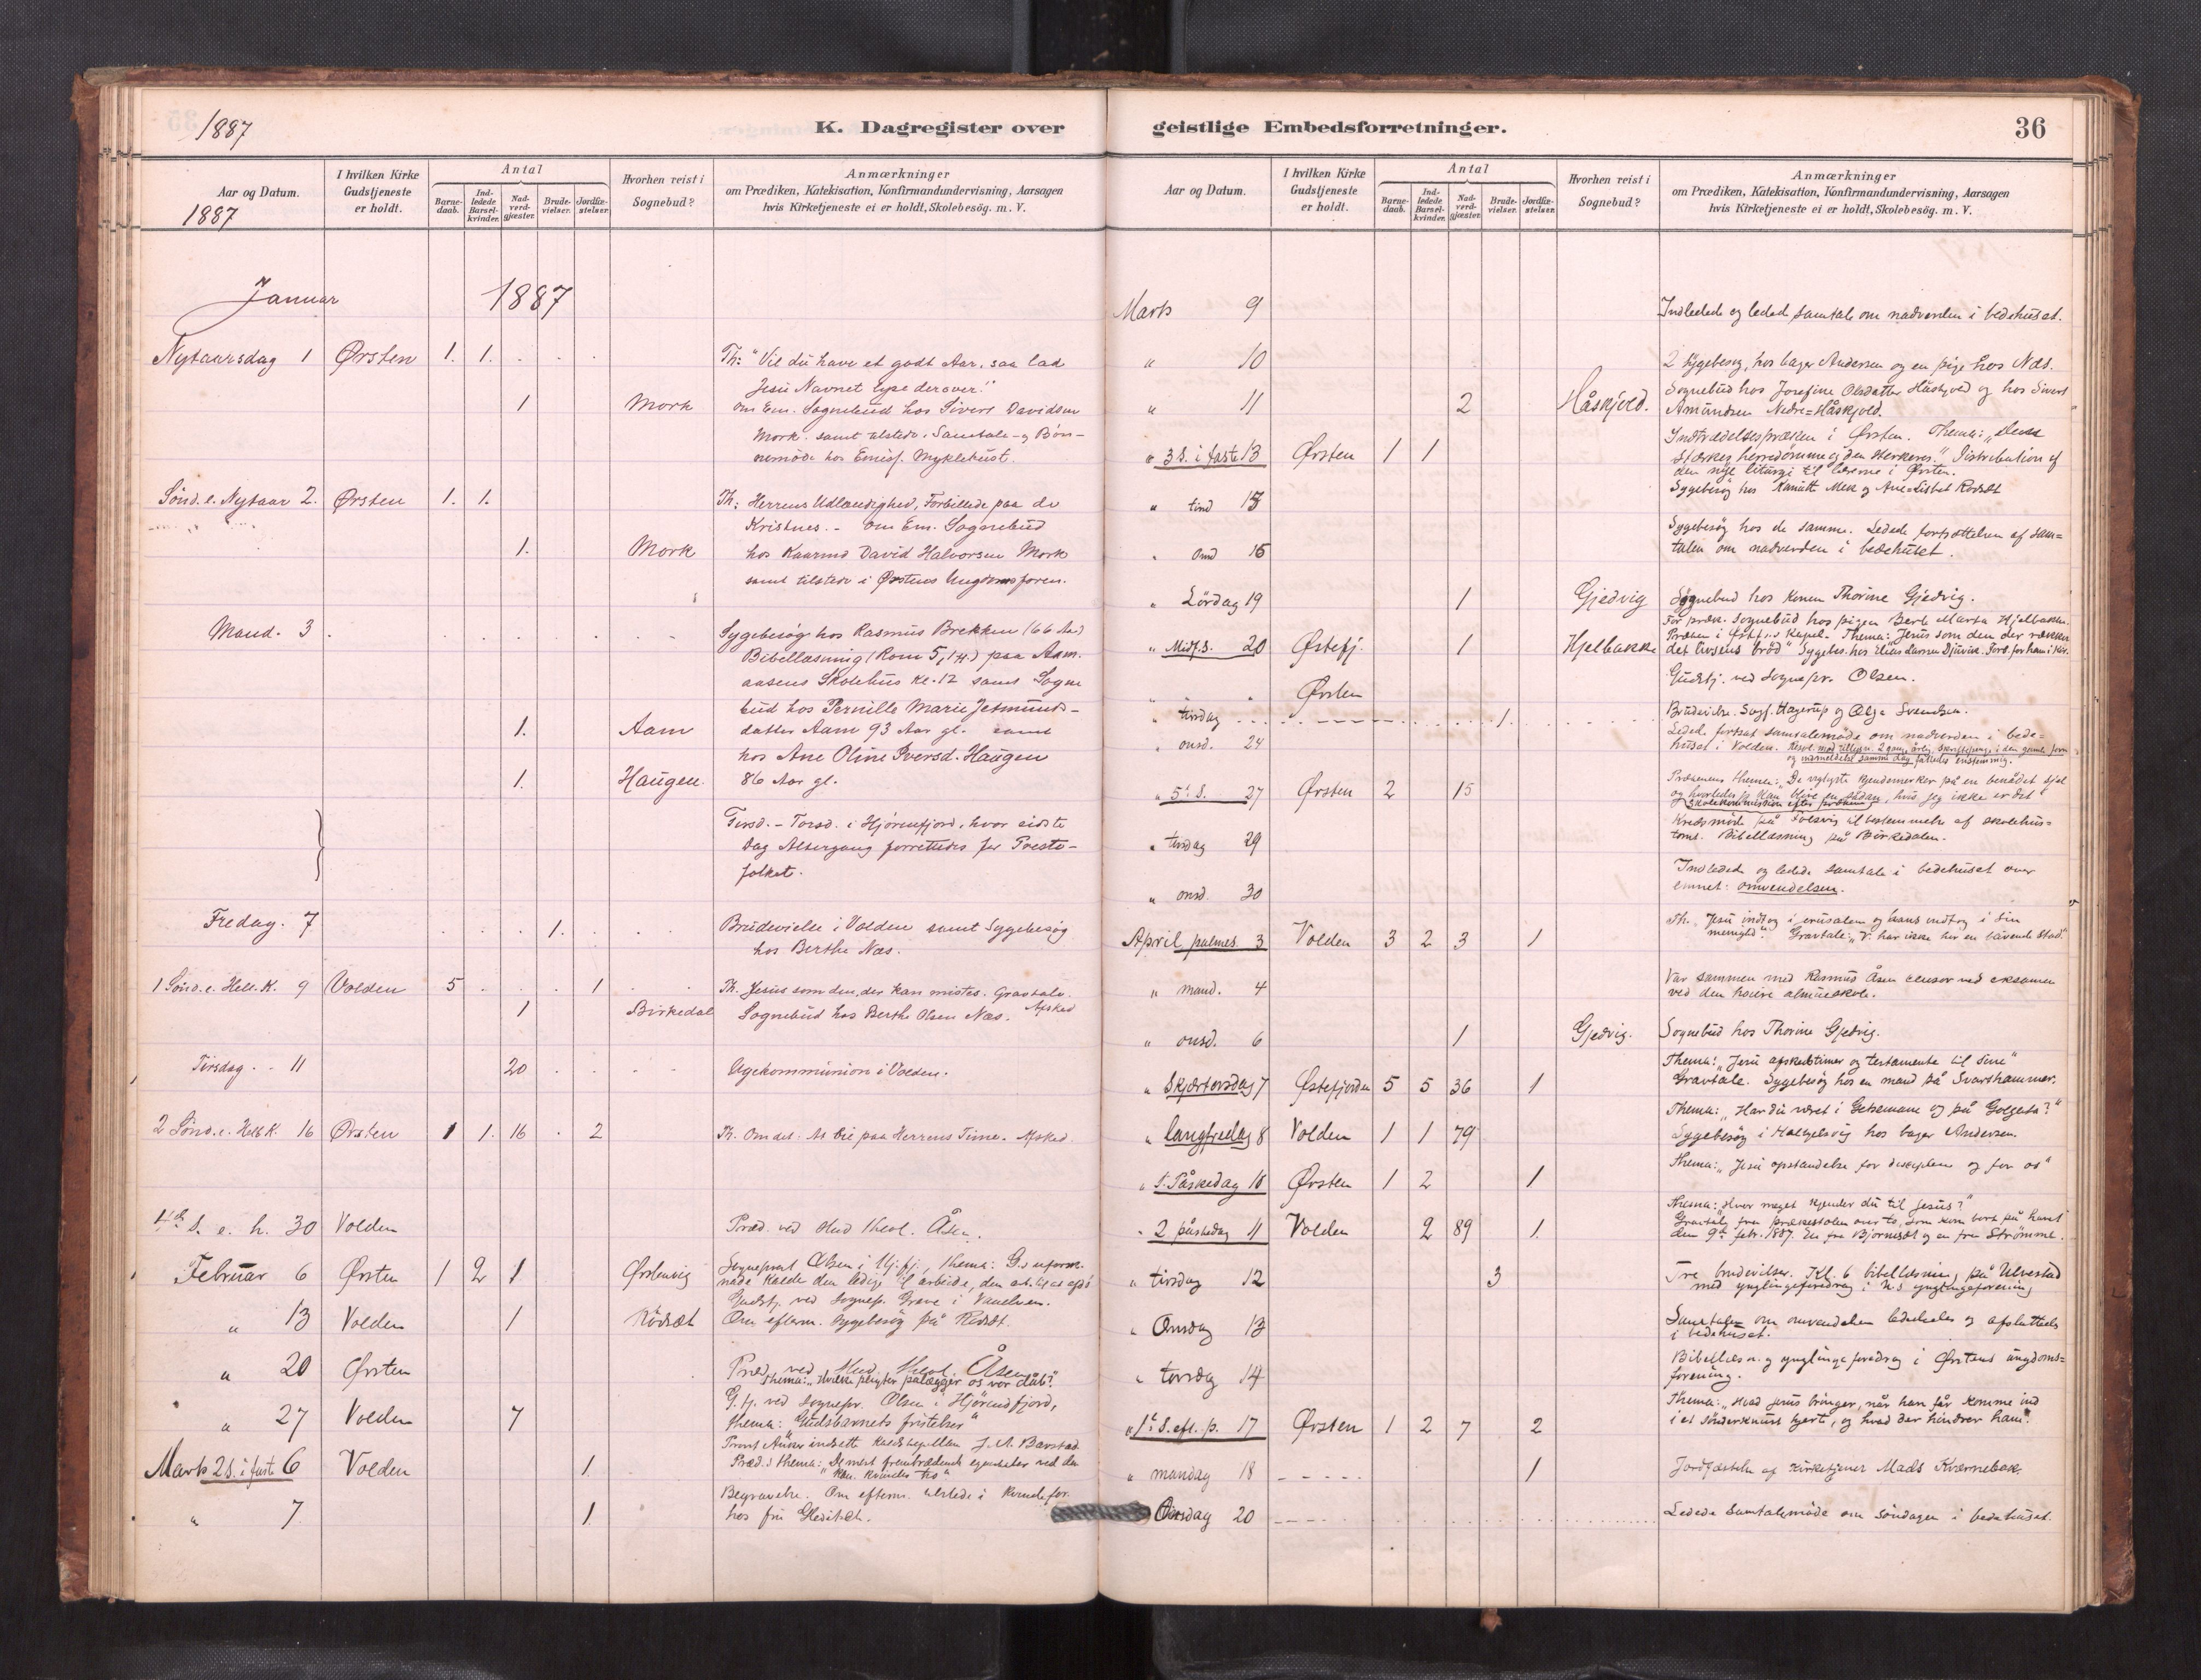 1887
K. Dagregister over
Aar og Datum.
1887
I hvilken Kirke Gudstjeneste er holdt.
Antal
Barnedaab.
Indledede Barselkvinder.
Nadverdgjæster.
Brudevielser.
Jordfæstelser.
Hvorhen reist i Sognebud?
Anmærkninger
om Prædiken, Katekisation, Konfirmandundervisning, Aarsagen
hvis Kirketjeneste ei er holdt, Skolebesög. m. V.
Januar 1887
Nytaarsdag 1 Ørsten 1. 1. . . . Th: "Vil du have et godt Aar, saa lad
Jesu Navnet lyse derover!"
1 Mork om Em. Sognebud hos Sivert Davidsen
Mork. samt tilstede i Samtale- og Bön-
nemöde hos Myklebust.
Sönd. e. Nytaar 2. Ørsten 1. 1. Th: Herrens Udlændighed, Forbillede paa de
Kristnes. - Om Em. Sognebud
1. Mork hos David Halvorsen Mork
samt tilstede i Ørstens Ungdomsforen.
Mand. 3 . Sygebesög hos Rasmus Brekken (66 Aar)
Bibellæsning (Rom 5,1 ff.) paa Aam-
aasens Skolehus kl. 12 samt Sogne
bud hos Pernille Marie Jetmunds-
1. Aam datter Aam 93 Aar gl. samt
hos Ane Oline Iversd. Haugen
1. Haugen. 86 Aar gl.
Tirsd. - Torsd. i Hjörenfjord, hvor sidste
Dag Altergang forrettedes for Preste-
folket.
Fredag. 7 1. Brudevielse i Volden samt Sygebesög
hos Berthe Næs.
1 Sönd. e. Hell. K. 9 Volden 5 1 Th. Jesus som den, der kan mistes. Gravtale.
1 Birkedal Sognebud hos Berthe Olsen Næs. Afsked
Tirsdag . . 11 20 Ugekommunion i Volden.
2 Sönd. e. Hell K. 16 Ørsten 1 1. 16 . 2 Th. Om det. At bie paa Herrens Time. Afsked.
4de S. e. h. 30 Volden Præd. ved stud. theol. Åsen.
Februar 6 Ørsten 1 2 1 Ørstenvig Sogneprest Olsen i Hj.fj., thema:
nade kalde den ledige til arbeide,
Gudstj. ved sognepr. Greve i Vanelven.
" 13 Volden 1 Rödsæt Om efterm. sygebesög på Rödsæt.
" 20 Ørsten Præd. ved stud. theol. Åsen
thema: "Hvilke pligter pålægger os vor dåb?"
G.tj. ved sognepr. Olsen i Hjörendfjord,
" 27 Volden 7 thema: "Gudsbarnets fristelser"
Prost indsatte kaldskapellan J. A. Barstad.
Marts 2 S. i faste 6 Volden 1. Præd.s thema: "De mest fremtrædende egenskaber ved den
kan. kvindes tro"
Begravelse. Om efterm. tilstede i kvindefor.
" 7 1. hos fru
geistlige Embedsforretninger.
36
Aar og Datum.
I hvilken Kirke Gudstjeneste er holdt.
Antal
Barnedaab.
Indledede Barselkvinder.
Nadverdgjæster.
Brudevielser.
Jordfæstelser.
Hvorhen reist i Sognebud?
Anmærkninger
om Prædiken, Katekisation, Konfirmandundervisning, Aarsagen
hvis Kirketjeneste ei er holdt, Skolebesög. m. V.
Marts 9 Indledede og ledede samtale om nadverden i bedehuset.
" 10 2 sygebesög, hos bager Andersen og en pige hos Næs.
Sognebud hos Josefine Olsdatter Håskjold og hos Sivert
" 11 2 Håskjold. Amundsen Nedre-Håskjold.
Indtrædelsespræken i Ørsten. Thema: "Den
" 3 S. i faste 13 Ørsten 1 1 stærkes herredömme og den stærkeres." Distribution af
den nye liturgi til lærerne i Ørsten.
" tirsd 15 Sygebesög hos og Ane-Lisbet Rödsæt
" Onsd 16 Sygebesög hos de samme. Ledede fortsættelsen af sam-
talen om nadverden i bedehuset.
" Lördag 19 1 Gjedvig Sognebud hos konen Thorine Gjedvig.
För præk. sognebud hos pigen Berte Marta Hjelbakken.
" Midf.S. 20 Østefj. 1 Hjelbakke Præken i Østefj.s kapel. Thema: "Jesus som den der rækker
det livsens bröd" Sygebes. hos Elias Larsen Djuvik.
" " Ørsten Gudstj. ved Sognepr. Olsen.
" tirsdag 1. Brudevielse. Sagf. Hagerup og Olga Svendsen.
" onsd. 24 Ledede fortsat samtalemöde om nadverden i bede-
huset i Volden.
og indmeldelse samme dag fattedes enstemmig.
" 5te S. 27 Ørsten 2 15 Prækenens thema: "De vigtigste kjendemerker på en benådet sjel
og hvorledes jeg kan blive en sådan, hvis jeg ikke er det"
Skolekommission efter præken.
" tirsdag 29 Kredsmöde på Folkevig til bestemmelse af skolehus-
tomt. Bibellæsning på Birkedalen.
" onsd. 30 Indledede og ledede samtale i bedehuset over
emnet: omvendelsen.
April palmes. 3 Volden 3 2 3 1 Th. "Jesu indtog i Jerusalem og hans indtog i sin
menighed". Gravtale: "Vi har ikke her en blivende Stad."
" mand. 4 Var sammen med Rasmus Åsen censor ved eksamen
ved den höiere almueskole.
" onsd. 6 1 Gjedvig. Sognebud hos Thorine Gjedvig.
Thema: "Jesu afskedstimer og testamente til sine"
" Skjærtorsdag 7 Østefjorden 5 5 36 1 Gravtale. Sygebesög hos en mand på Svarshammer.
Thema: "Har du været i Getsemane og på Golgata?"
" langfredag 8 Volden 1 1 79 Sygebesög i Halkjelsvig hos bager Andersen.
" 1. Påskedag 10 Ørsten 1 2 1 Thema: "Jesu opstandelse for disciplene og for os"
Thema: "Hvor meget kjender du til Jesus?"
" 2 påskedag 11 Volden 2 89 1. Gravtale fra prækestolen over to, som kom bort på havet
den 9de febr. 1887. En fra Björnesæt og en fra Strömme.
" tirsdag 12 3 Tre brudevielser. Kl. 6 bibellæsning på Ulvestad
med ynglingeforedrag i U.s ynglingeforening
" Onsdag 13 Samtalen om omvendelsen lededes og afsluttedes
i bedehuset.
" torsdag 14 Bibellæsn. og ynglinge foredrag i Ørstens ungdoms-
forening.
" 1te S. eft. p. 17 Ørsten 1 2 7 2 Thema: "Hvad Jesus bringer, når han får komme ind
i et sönderknust hjerte, og hvad der hindrer ham".
" mandag 18 1 Jordfæstelse af kirketjener Mads Kværnebak.
Onsdag 20 Ledede samtalemöde om söndagen i bedehuset.